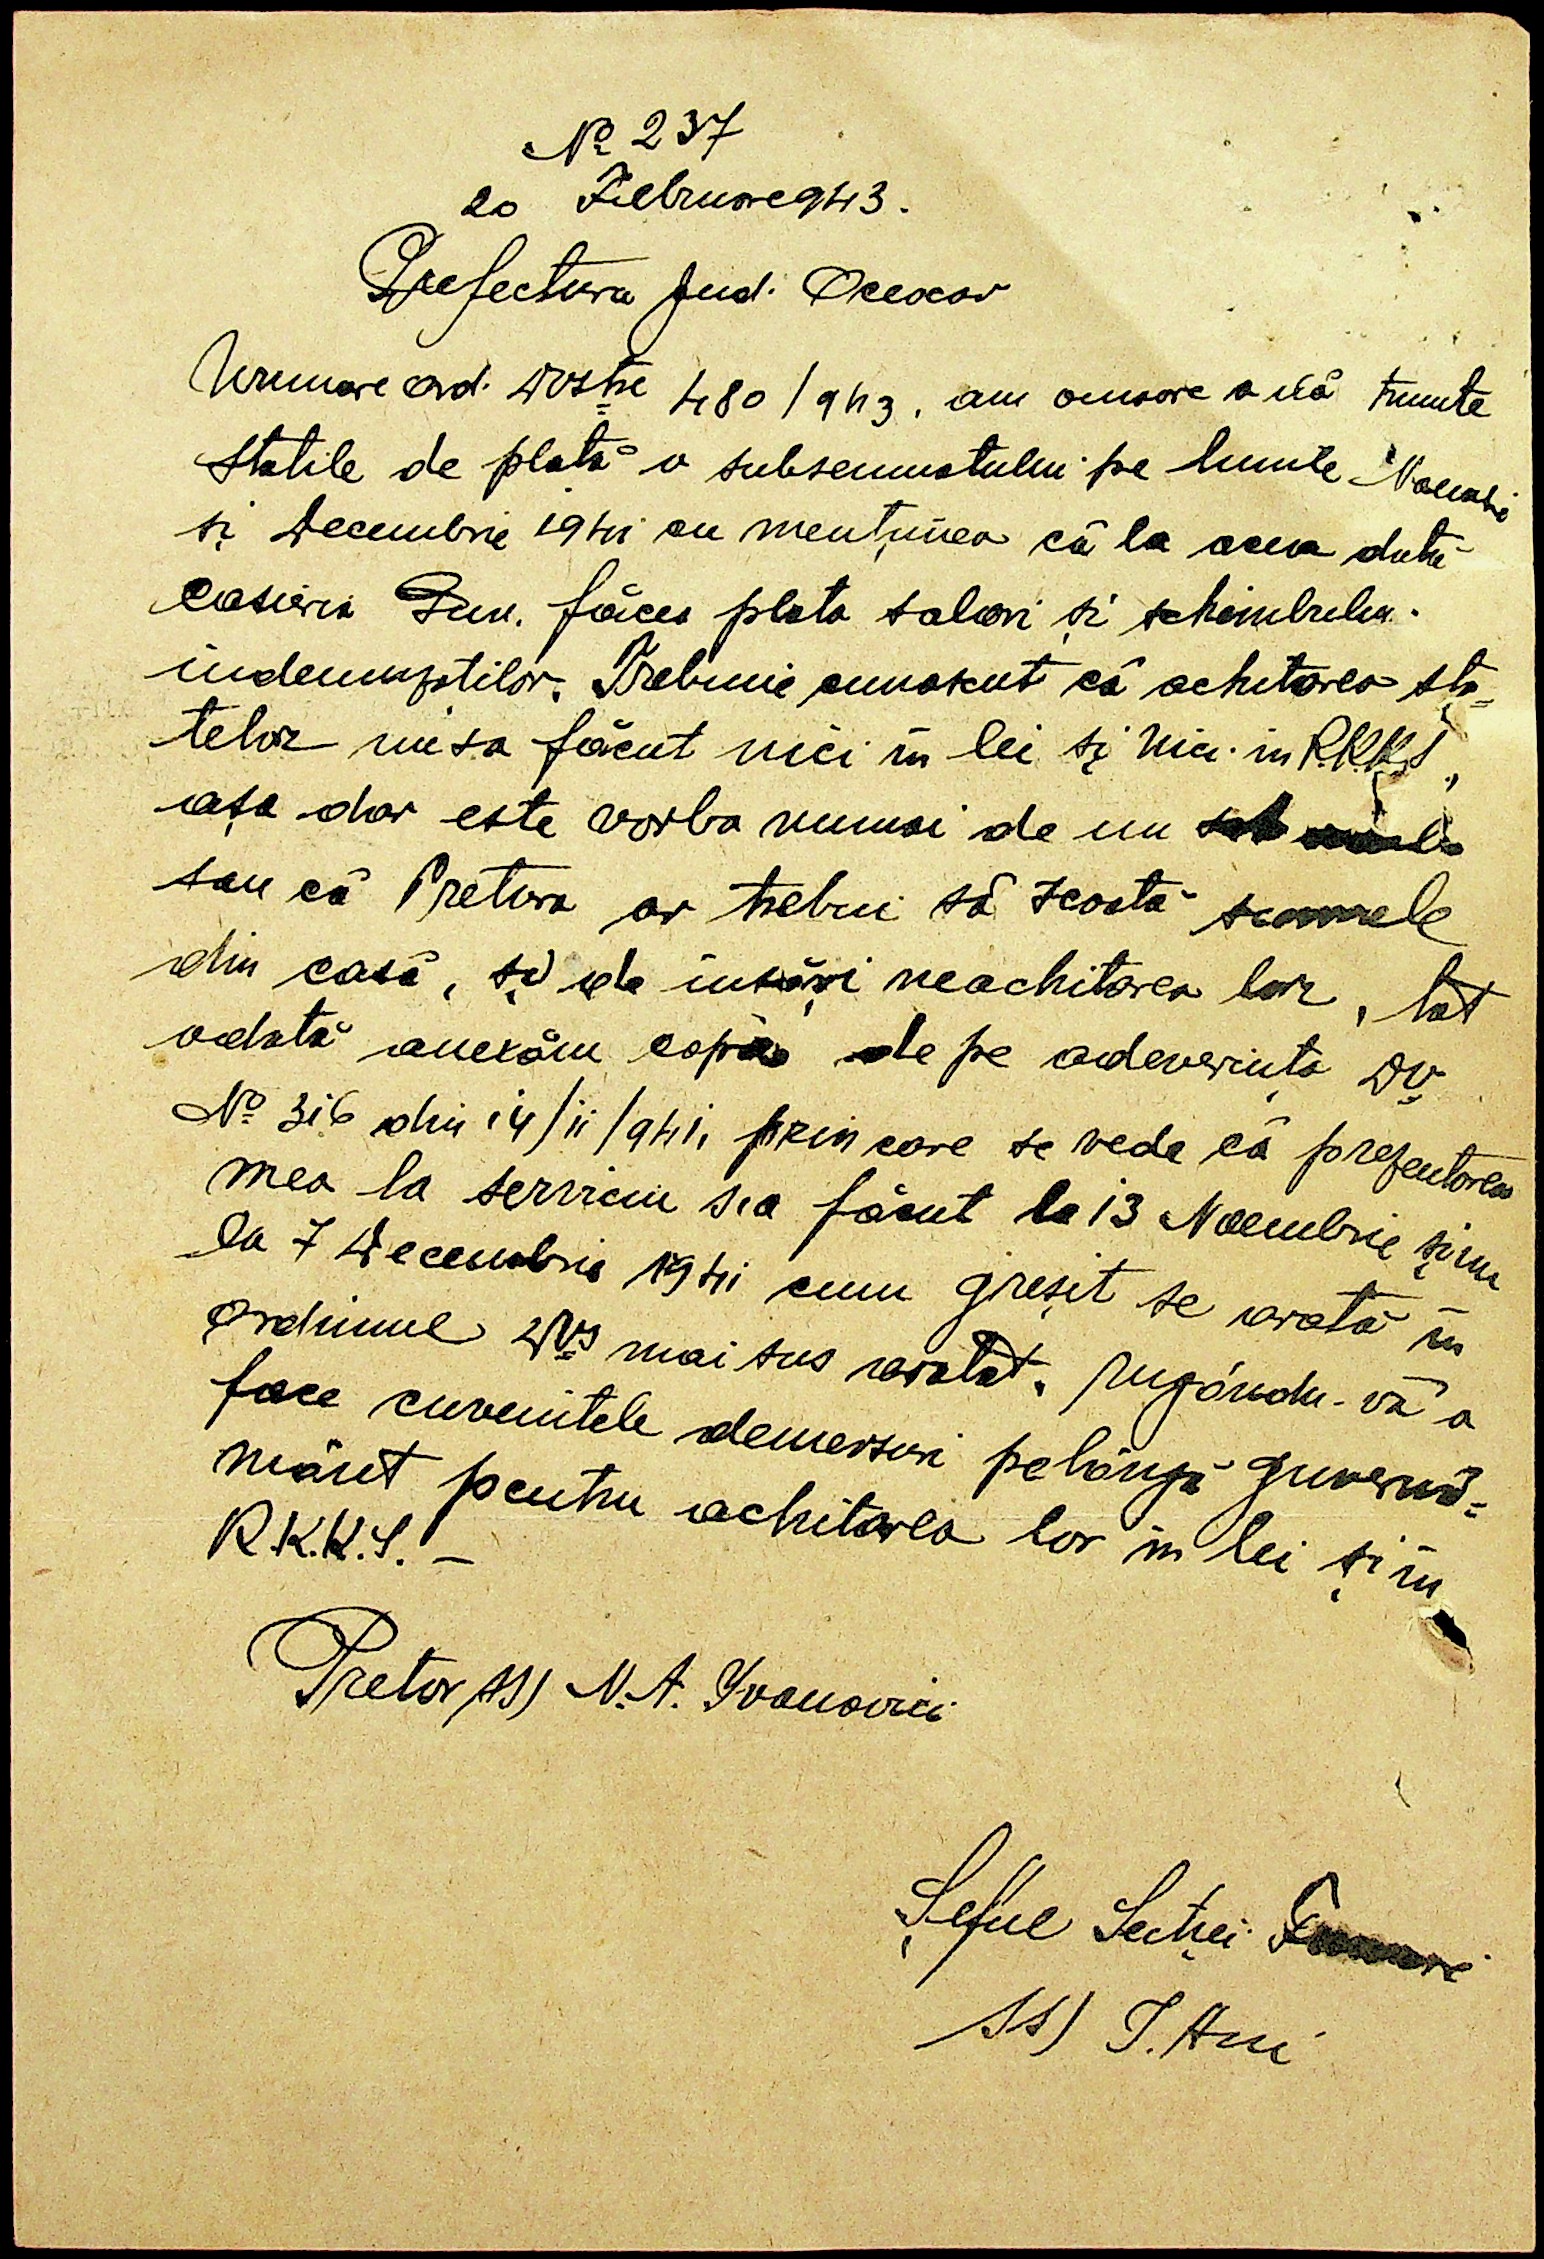 № 237
20 Februare 943.
Prefectura Jud. Oceacov
Urmare ord. Dvstre 480/943, am onoare a vă trimite
statile de plată a subsemnatului pe lunile Noembrie
și Decembrie 1941 cu mențiunea că la acea dată
casieria Guv. făcea plata salari și schimbului
indemnizatilor. Trebuie cunoscut că achitarea sta=
telor nu sa făcut nici în lei și nici in R.K.K.S.,
așa dar este vorba numai de un
sau că Pretura ar trebui să scoată sumele
din casă, și de însăși neachitarea lor, tot
odată anexăm copia de pe adeverința Dv
№ 316 din 14/11/941, prin care se vede că prezentarea
mea la serviciu s'a făcut la 13 Noembrie și nu
la 7 Decembrie 1941 cum greșit se arată în
ordinul Dvs mai sus aratat, rugându-vă a
face cuvenitele demersuri pelângă guvernă=
mânt pentru achitarea lor în lei și în
R.K.K.S. —
Pretor ss) N. A. Ivanovici
Șeful Secției
ss) I.